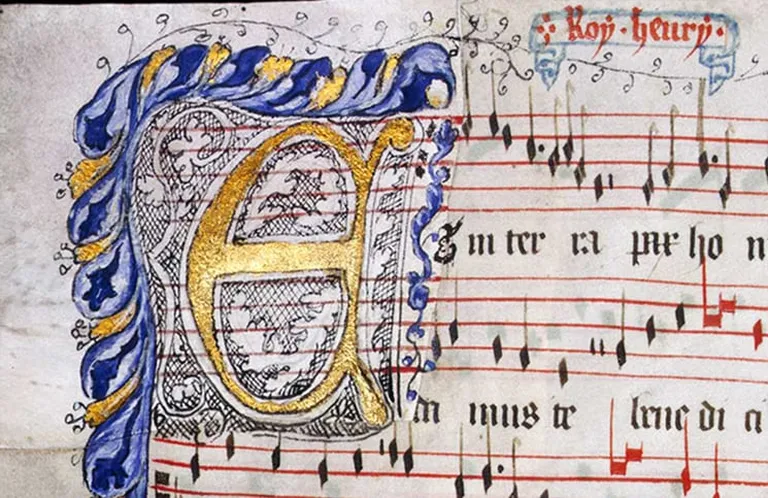 Roy · henry ·
Et in ter ra pax ho
da mus te bene di ci